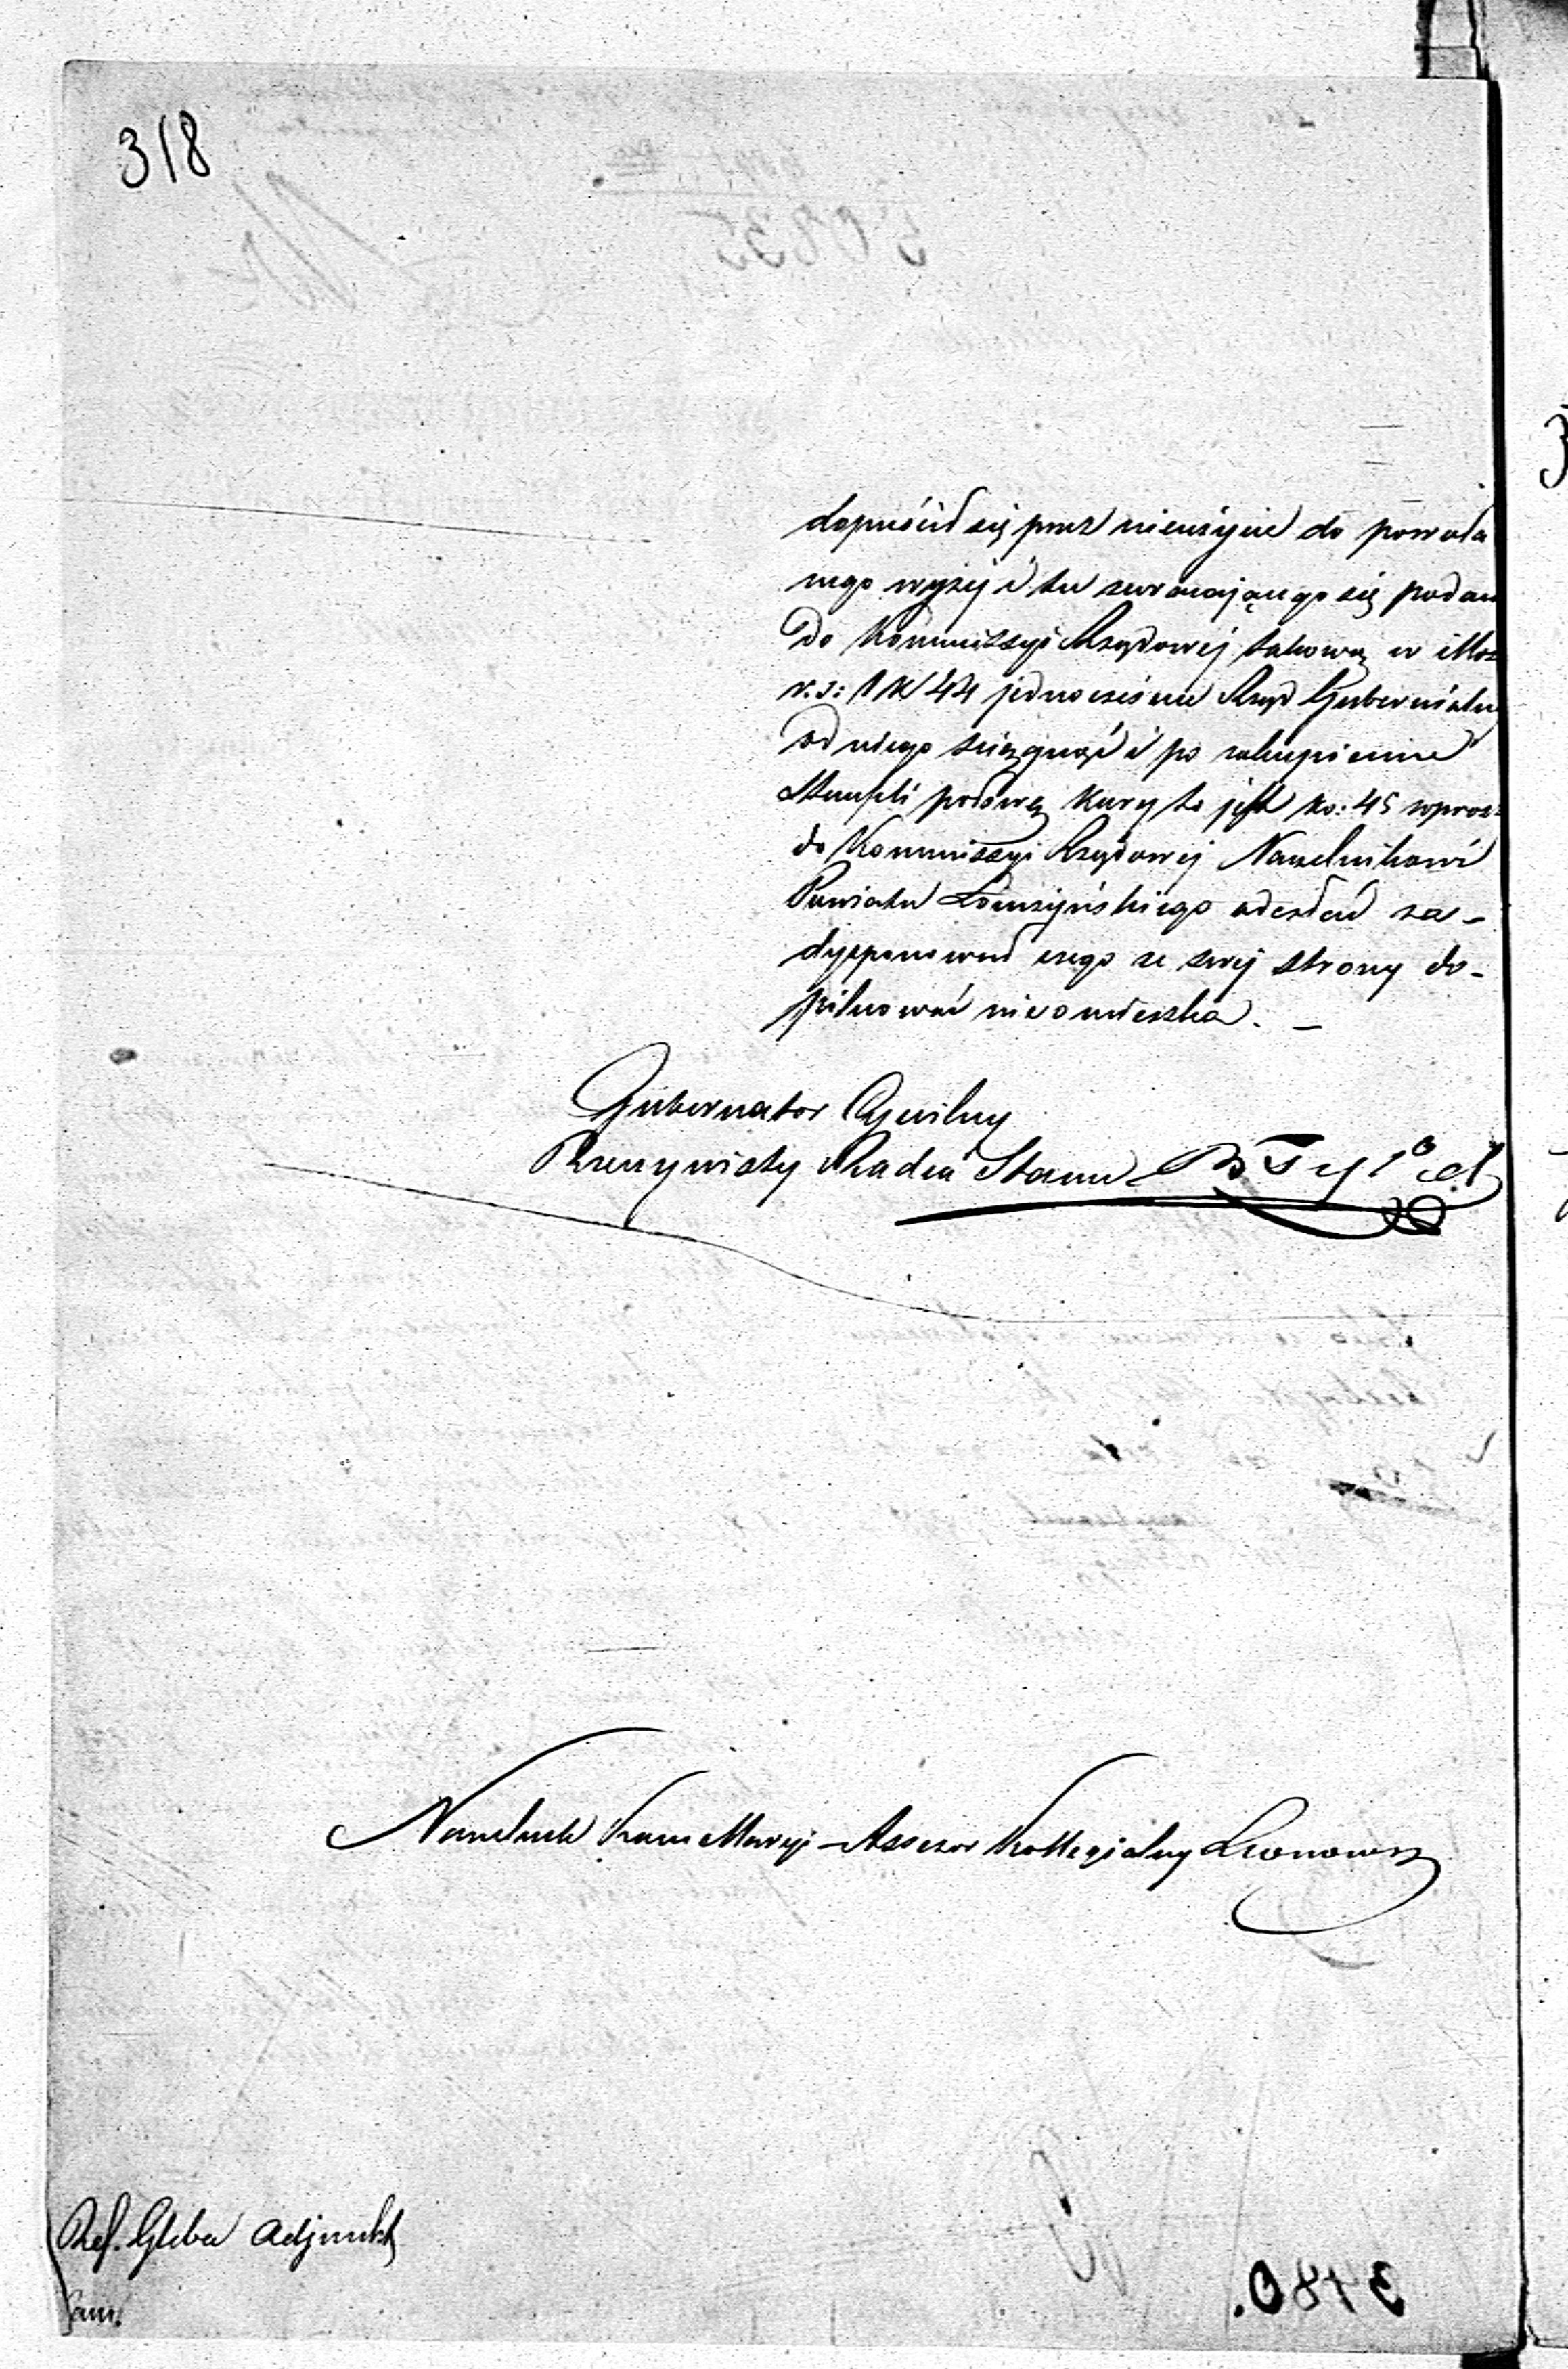 318
dopuścił się przez nieużycie do powoła
nego wyżej i tu zwracającego się podan
do Kommissyi Rządowej takową w illoś
r. s: 1 K 44 jednocześnie Rząd Gubernialn
od niego ściągnąć i po zakupieniu
Stempli podówcz kary to jest ko: 45 wprost
do Kommissyi Rządowej Naczelnikowi
Powiatu Łomżyńskiego odesłać za-
dysponował czego ze swej strony do-
pilnować nieomieszka. -
Gubernator Cywilny
Rzeczywisty Radca Stanu
Naczelnik Kancellaryi Assesor Kollegialny
Ref. Gleba Adjunkt
3480.